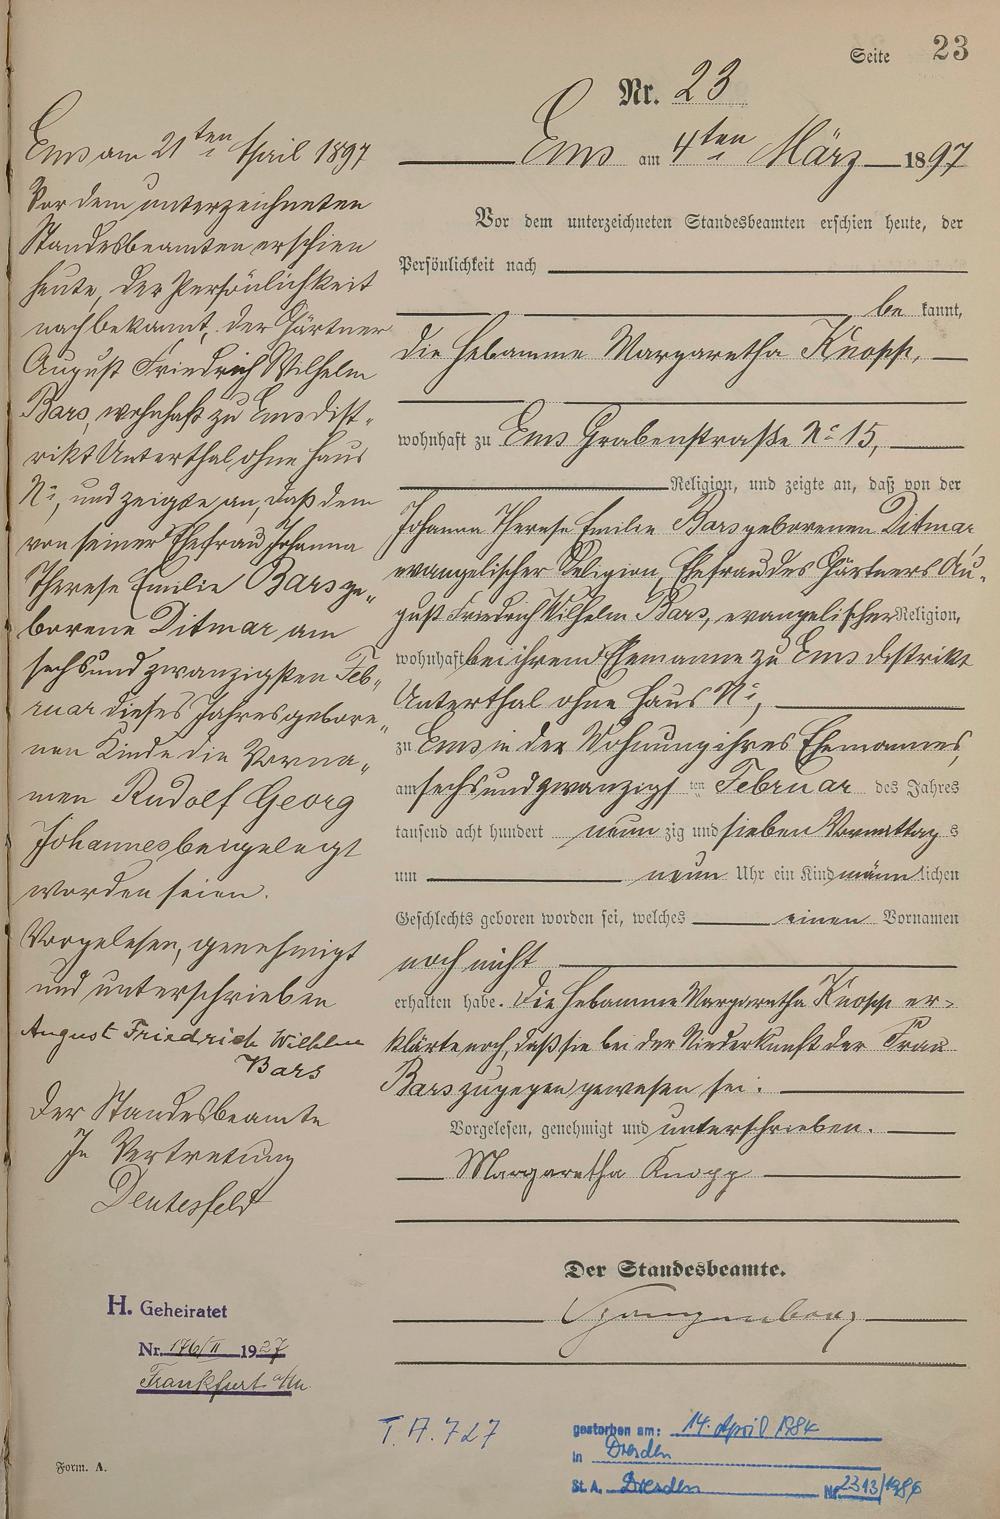 Seite 23
Nr. 23
Ems am 4ten März 1897
Vor dem unterzeichneten Standesbeamten erschien heute, der
Persönlichkeit nach
be kannt,
die Hebamme Margaretha Knopp,
wohnhaft zu Ems Grabenstraße No 15,
Religion, und zeigte an, daß von der
Johanna Therese Emilie Bars geborenen Ditmar,
evangelischer Religion, Ehefrau des Gärtners Au-
gust Friedrich Wilhelm Bars, evangelischer Religion,
wohnhaft bei ihrem Ehemanne zu Ems Distrikt
Unterthal ohne Haus No,
zu Ems in der Wohnung ihres Ehemannes,
am sechsundzwanzigsten Februar des Jahres
tausend acht hundert neun zig und sieben Vormittags
um neun Uhr ein Kind männlichen
Geschlechts geboren worden sei, welches einen Vornamen
noch nicht
erhalten habe. Die Hebamme Margaretha Knopp er-
klärte noch, daß sie bei der Niederkunft der Frau
Bars zugegen gewesen sei.
Vorgelesen, genehmigt und unterschrieben.
Margaretha Knopp
Der Standesbeamte.
Ems am 21ten April 1897
Vor dem unterzeichneten
Standesbeamten erschien
heute, der Persönlichkeit
nach bekannt, der Gärtner
August Friedrich Wilhelm
Bars, wohnhaft zu Ems Dist-
rikt Unterthal ohne Haus
No, und zeigte an, daß dem
von seiner Ehefrau Johanna
Therese Emilie Bars ge-
borene Ditmar, am
sechsundzwanzigsten Feb-
ruar dieses Jahres gebore-
nen Kinde die Vorna-
men Rudolf Georg
Johannes beigelegt
worden seien.
Vorgelesen, genehmigt
und unterschrieben
August Friedrich Wilhlm
Bars
Der Standesbeamte
In Vertretung
Deutesfeld
H. Geheiratet
Nr. 176/II 1927
Frankfurt a/M
T. A. 727
gestorben am: 14. April 1984
in Dresden
St. A. Dresden Nr. 2313/1984
Form. A.